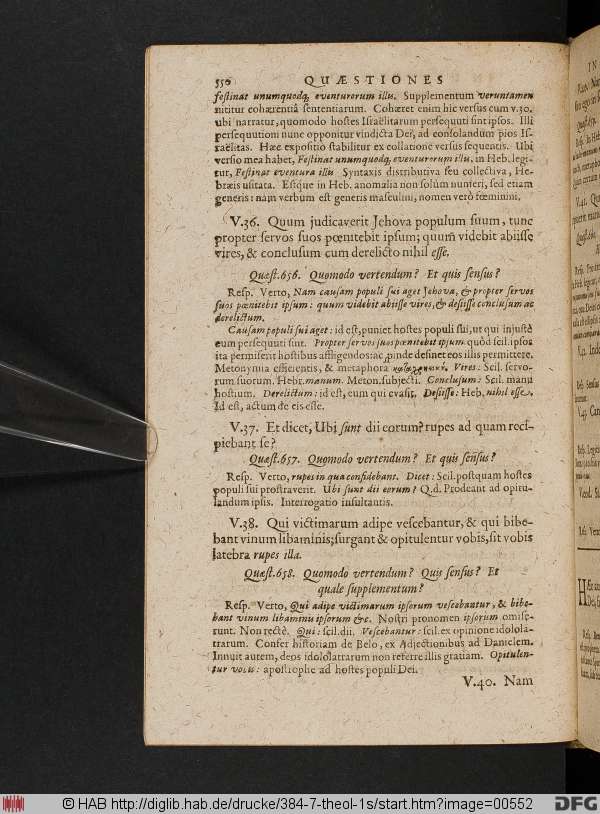 550 QUÆSTIONES
festinat unumquodq, eventurorum illis. Supplementum veruntamen
nititur cohærentiâ sententiarum. Cohæret enim hic versus cum v.30.
ubi narratur, quomodo hostes Israëlitarum persequuti sint ipsos. Illi
persequutioni nunc opponitur vindicta Dei, ad consolandum pios Is-
raëlitas. Hæc expositio stabilitur ex collatione versus sequentis. Ubi
versio mea habet, Festinat unumquodq, eventurorum illis, in Heb. legi-
tur, Festinat eventura illis Syntaxis distributiva seu collectiva, He-
bræis usitata. Estque in Heb. anomalia non solùm numeri, sed etiam
generis: nam verbum est generis masculini, nomen verò fœminini.
V.36. Quum judicaverit Jehova populum suum, tunc
propter servos suos pœnitebit ipsum; quum videbit abiisse
vires, & conclusum cum derelicto nihil esse.
Quæst.656. Quomodo vertendum? Et quis sensus?
Resp. Verto, Nam causam populi sui aget Jehova, & propter servos
suos pœnitebit ipsum: quum videbit abiisse vires, & desiisse conclusum ac
derelictum.
Causam populi sui aget: id est, puniet hostes populi sui, ut qui injustè
eum persequuti sint. Propter servos suos pœnitebit ipsum quòd scil. ipsos
ita permiserit hostibus affligendos: ac proinde desinet eos illis permittere.
Metonymia efficientis, & metaphora Vires: Scil. servo-
rum suorum. Hebr. manum. Meton. subjecti. Conclusum: Scil. manu
hostium. Derelictum: id est, eum qui evasit. Desiisse: Heb. nihil esse.
Id est, actum de eis esse.
V.37. Et dicet, Ubi sunt dii eorum? rupes ad quam reci-
piebant se?
Quæst.657. Quomodo vertendum? Et quis sensus?
Resp. Verto, rupes in qua confidebant. Dicet: Scil. postquam hostes
populi sui prostraverit. Ubi sunt dii eorum? Q.d. Prodeant ad opitu-
landum ipsis. Interrogatio insultantis.
V.38. Qui victimarum adipe vescebantur, & qui bibe-
bant vinum libaminis; surgant & opitulentur vobis, sit vobis
latebra rupes illa.
Quæst.658. Quomodo vertendum? Quis sensus? Et
quale supplementum?
Resp. Verto, Qui adipe victimarum ipsorum vescebantur, & bibe-
bant vinum libaminis ipsorum &c. Nostri pronomen ipsorum omise-
runt. Non rectè. Qui: scil. dii. Vescebantur: scil. ex opinione idolola-
trarum. Confer historiam de Belo, ex Adjectionibus ad Danielem.
Innuit autem, deos idololatrarum non referre illis gratiam. Opitulen-
tur vobis: apostrophe ad hostes populi Dei.
V.40. Nam
© HAB http://diglib.hab.de/drucke/384-7-theol-1s/start.htm?image=00552
DFG